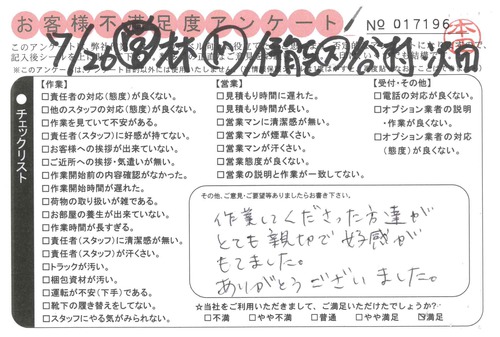 お客様不満足度アンケート
No 017196
本
7/26
チェックリスト
【作業】
□責任者の対応(態度)が良くない。
□他のスタッフの対応(態度)が良くない。
□作業を見ていて不安がある。
□責任者(スタッフ)に好感が持てない。
□お客様への挨拶が出来ていない。
□ご近所への挨拶・気遣いが無い。
□作業開始前の内容確認がなかった。
□作業開始時間が遅れた。
□荷物の取り扱いが雑である。
□お部屋の養生が出来ていない。
□作業時間が長すぎる。
□責任者(スタッフ)に清潔感が無い。
□責任者(スタッフ)が汗くさい。
□トラックが汚い。
□梱包資材が汚い。
□運転が不安(下手)である。
□靴下の履き替えをしてない。
□スタッフにやる気がみられない。
【営業】
□見積もり時間に遅れた。
□見積もり時間が長い。
□営業マンに清潔感が無い。
□営業マンが煙草くさい。
□営業マンが汗くさい。
□営業態度が良くない。
□営業の説明と作業が一致してない。
【受付・その他】
□電話の対応が良くない。
□オプション業者の説明
・作業が良くない。
□オプション業者の対応
(態度)が良くない。
その他、ご意見・ご要望等ありましたらお書き下さい。
作業してくださった方達が
とても親切で好感が
もてました。
ありがとうございました。
☆当社をご利用いただきまして、ご満足いただけでしょうか?
□不満 □やや不満 □普通 □やや満足 ☑満足